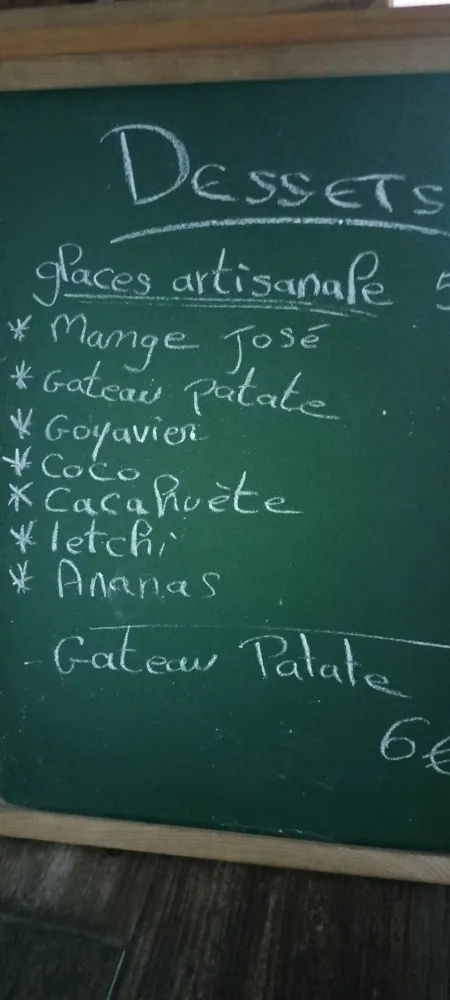 Desserts
glaces artisanale 5
* Mange José
* Gateau patate
* Goyavier
* Coco
* Cacahuète
* letchi
* Ananas
- Gateau Patate
6€